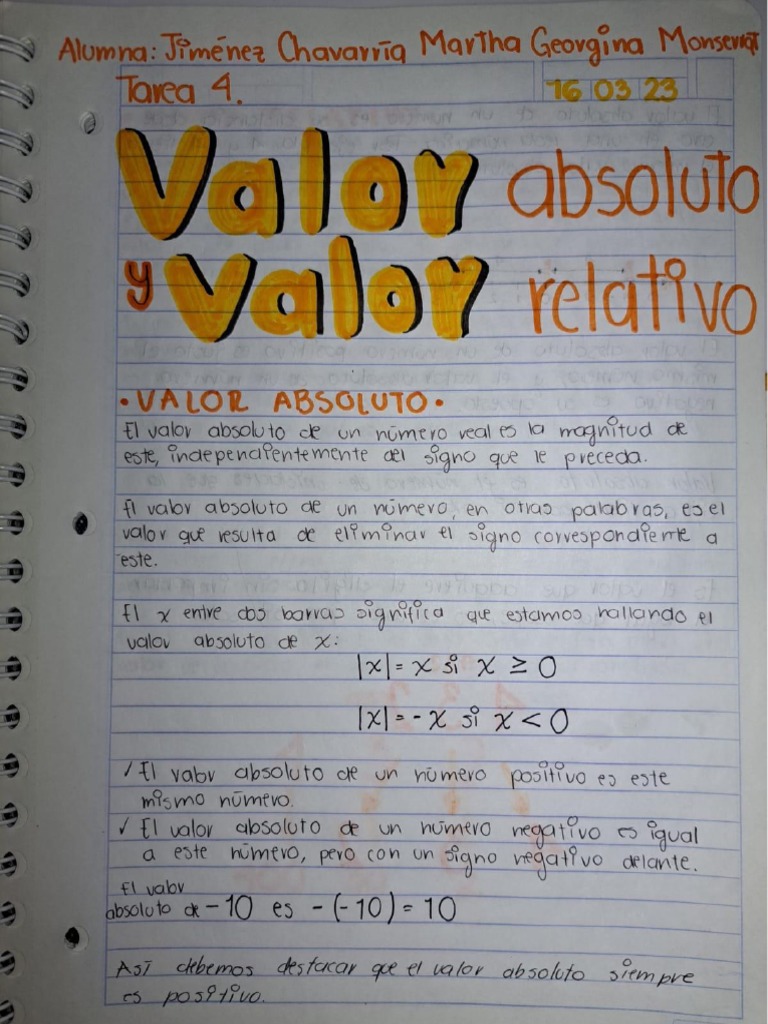 Alumna: Jiménez Chavarría Martha Georgina Monserrat
Tarea 4.
16 03 23
Valor absoluto
y Valor relativo
• VALOR ABSOLUTO •
El valor absoluto de un número real es la magnitud de
este, independientemente del signo que le preceda.
El valor absoluto de un número, en otras palabras, es el
valor que resulta de eliminar el signo correspondiente a
este.
El x entre dos barras significa que estamos hallando el
valor absoluto de x:
|x| = x si x ≥ 0
|x| = - x si x < 0
✓ El valor absoluto de un número positivo es este
mismo número.
✓ El valor absoluto de un número negativo es igual
a este número, pero con un signo negativo delante.
El valor
absoluto de -10 es -(-10) = 10
Así debemos destacar que el valor absoluto siempre
es positivo.